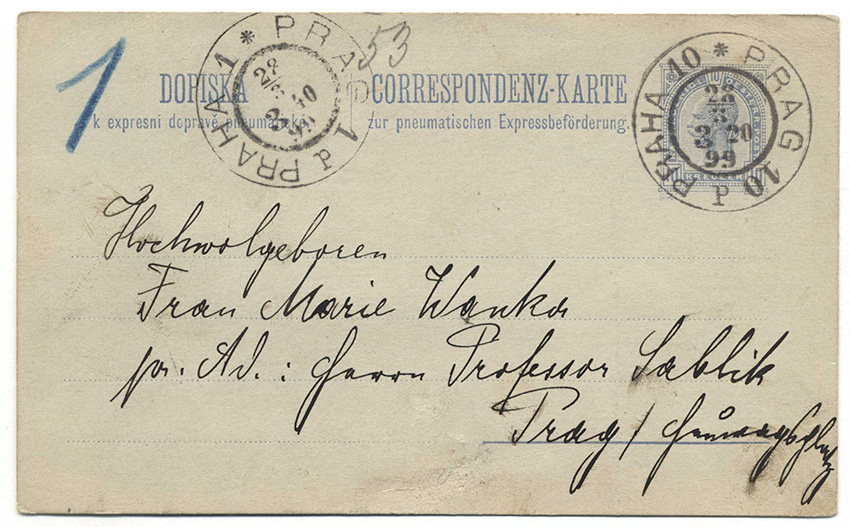 1
53
DOPISKA
CORRESPONDENZ-KARTE
k expresní dopravě pneumatické.
zur pneumatischen Expressbeförderung.
PRAG 1 d PRAHA 1 *
28
3 40
99
PRAG 10 P PRAHA 10 *
28
3
3 20
99
KREUZER
Hochwolgeboren
Frau Marie Wanka
pr. Ad.: Herrn Professor Sablik
Prag /